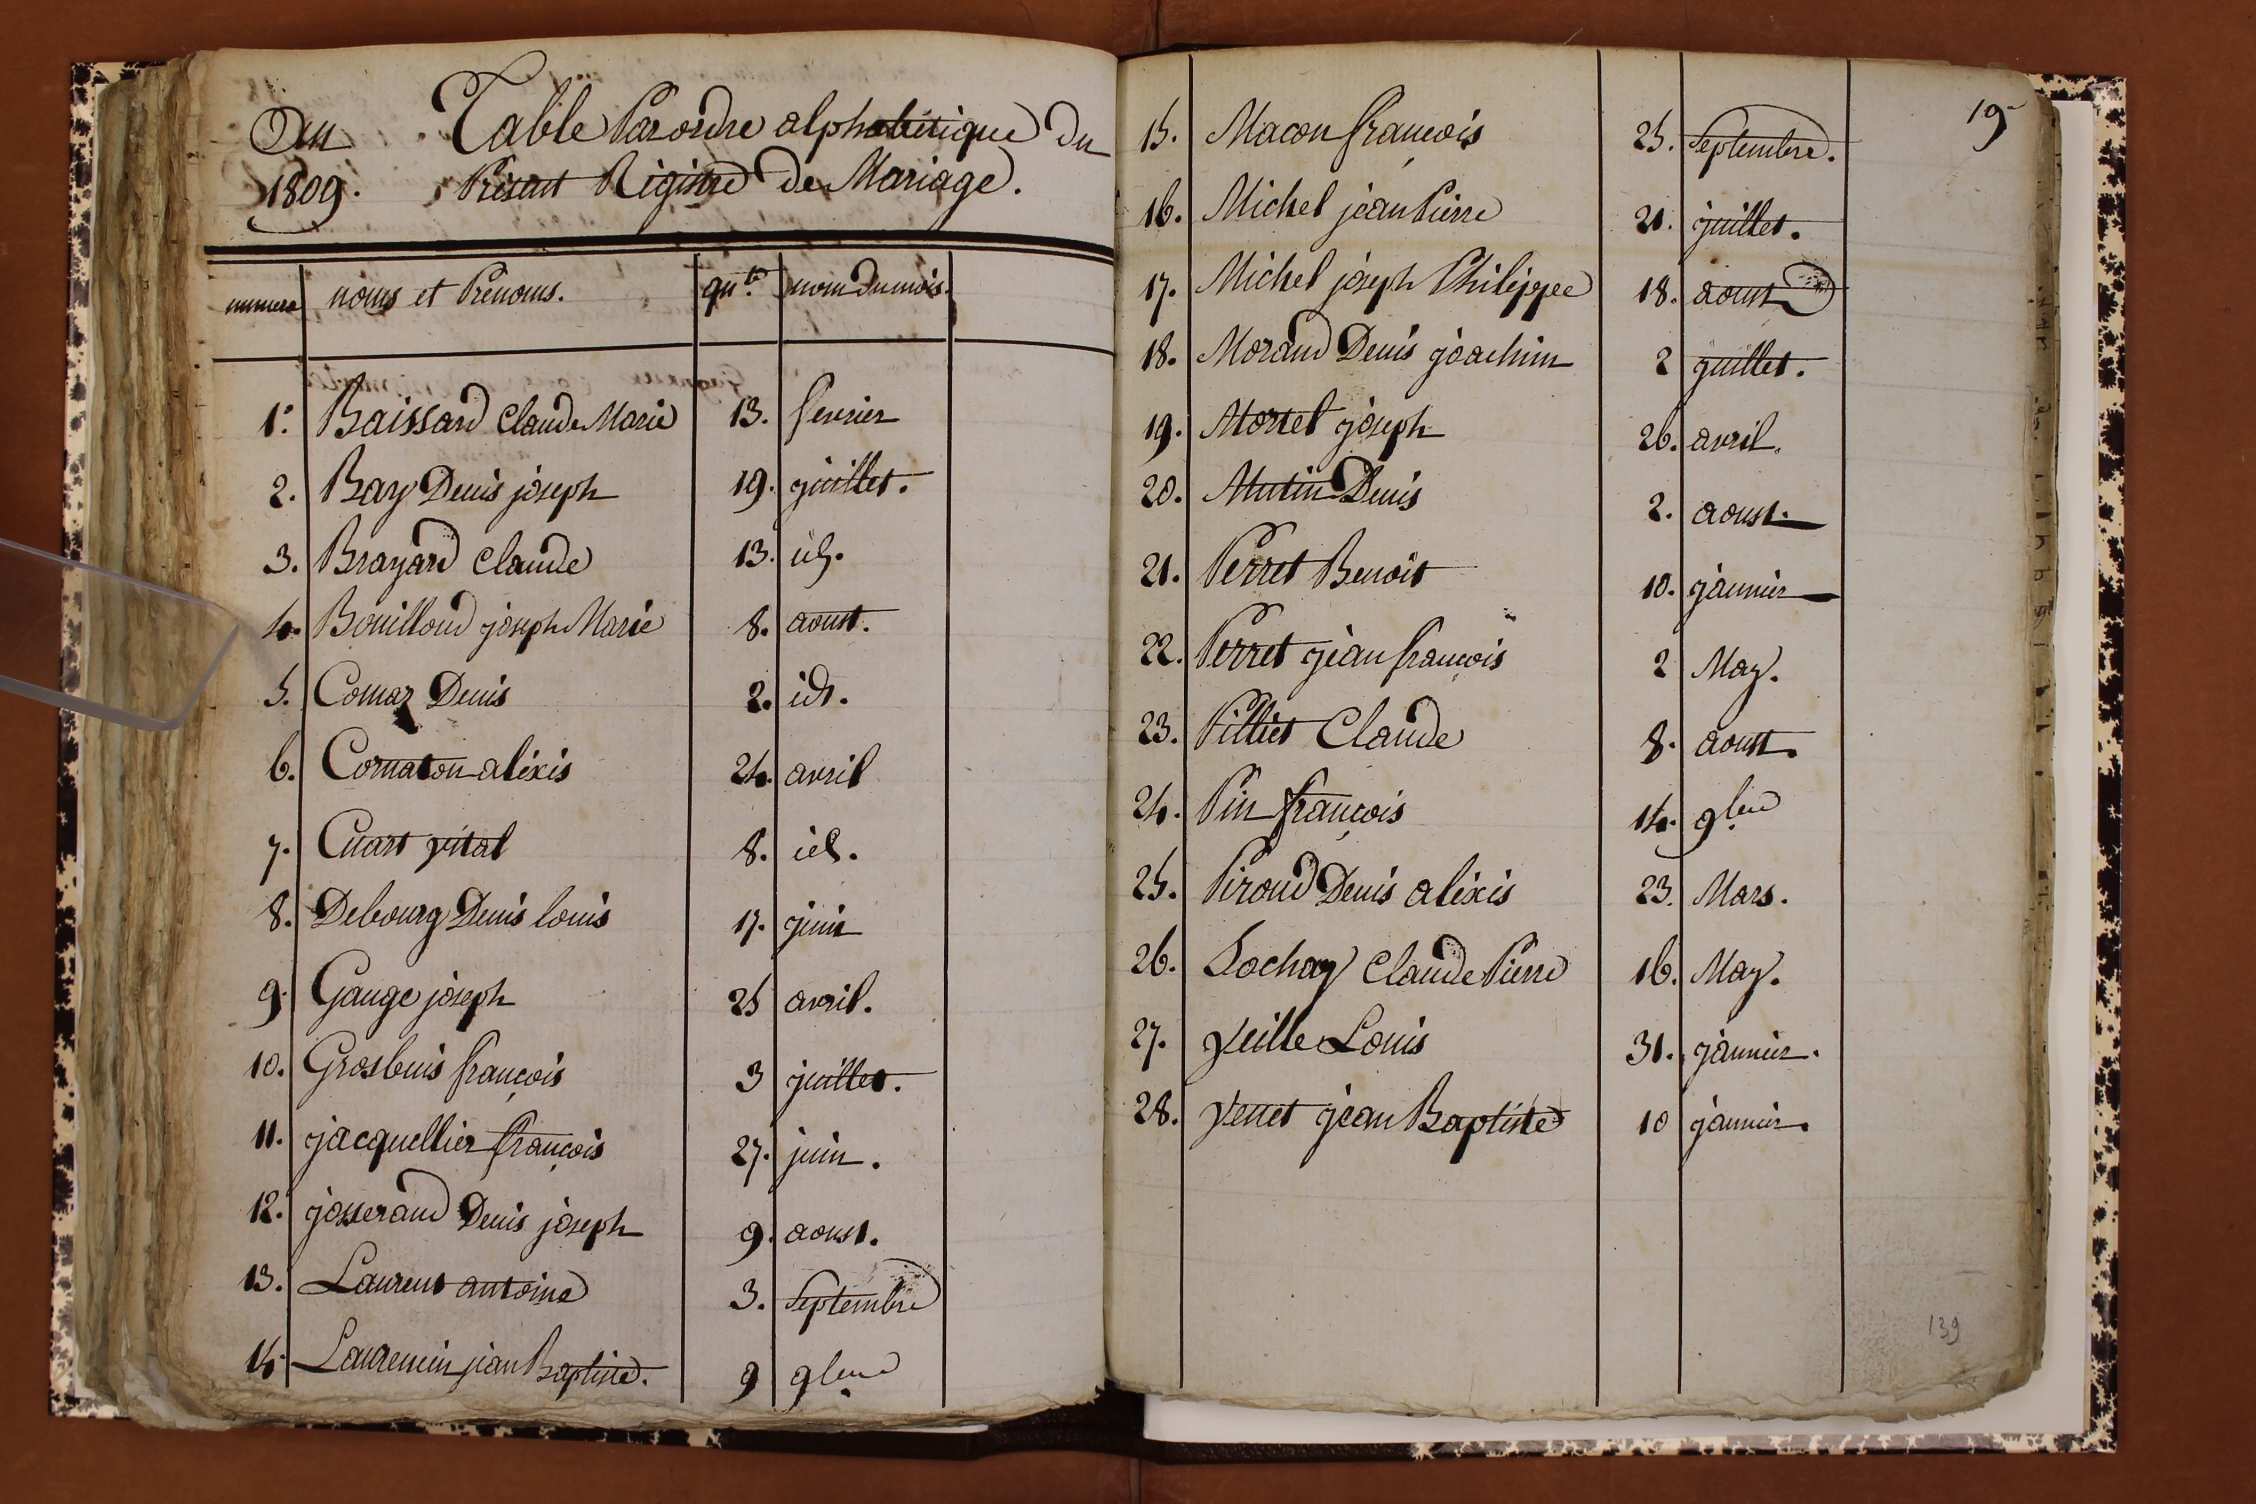 An Table Par ordre alphabétique du
1809. Présent Régistre de Mariage.
numero noms et Prénoms. qnt. nom du mois.
1. Baissard Claude Marie 13. fevrier
2. Bay Denis joseph 19. juillet.
3. Brayard Claude 13. id.
4. Bouilloud joseph Marie 8. aoust.
5. Comaz Denis 2. id.
6. Cornaton aléxis 24. avril
7. Cuart vital 8. id.
8. Debourg Denis louis 17. juin
9. Gauge joseph 25 avril.
10. Grosbuis françois 3 juillet.
11. jacquellier françois 27. juin.
12. josserand Denis joseph 9. aoust.
13. Laurent antoine 3. Septembre
14. Laurencin jean Baptiste. 9 9bre
19
15. Macon françois 25. Septembre.
16. Michel jean Pierre 21. juillet.
17. Michel joseph Philippe 18. aoust
18. Morand Denis joachim 2 juillet.
19. Mortel joseph 26. avril.
20. Mutin Denis 2. aoust.
21. Perret Benoit 10. janvier
22. Perret jean françois 2 May.
23. Pilliet Claude 8. aoust.
24. Pin françois 14. 9bre
25. Piroud Denis aléxis 23. Mars.
26. Sochay Claude Pierre 16. May.
27. Veille Louis 31. janvier.
28. Venet jean Baptiste 10 janvier.
139